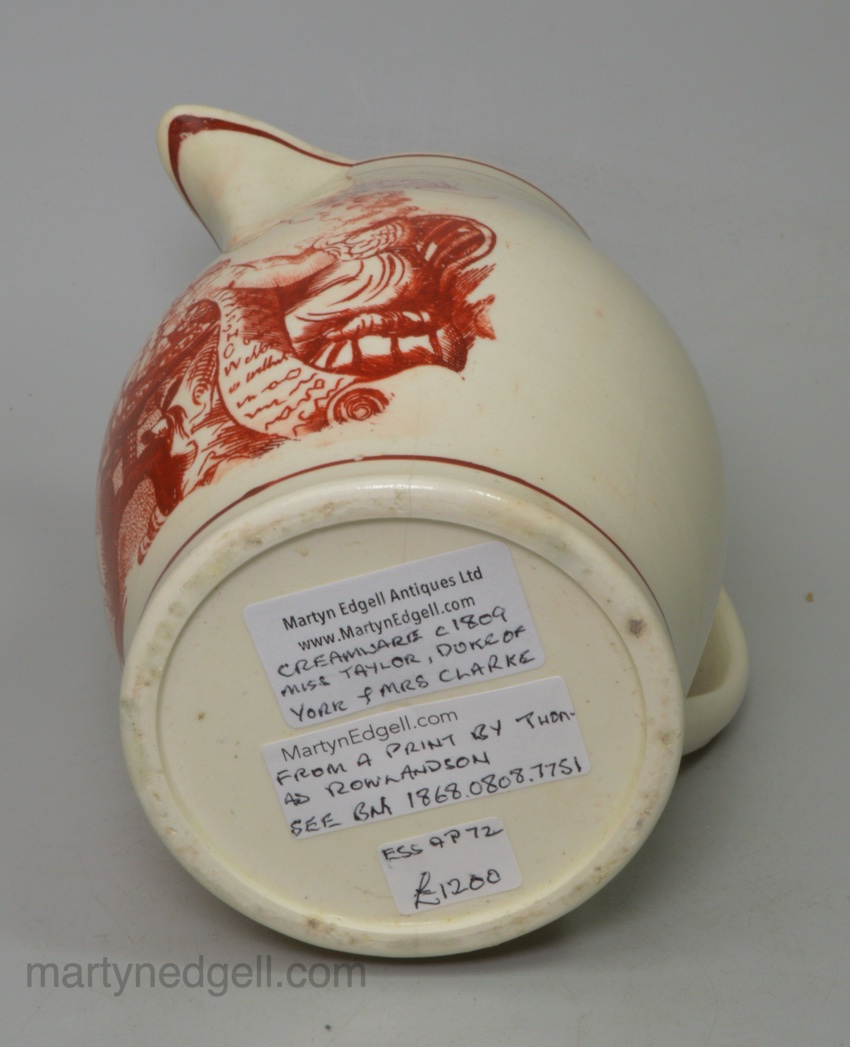 Martyn Edgell Antiques Ltd
www.MartynEdgell.com
CREAMWARE C1809
MISS TAYLOR, DUKE OF
YORK & MRS CLARKE
MartynEdgell.com
FROM A PRINT BY THOM-
AS ROWLANDSON
SEE BM 1868.0808.7751
ESS AP 72
£1200
martynedgell.com